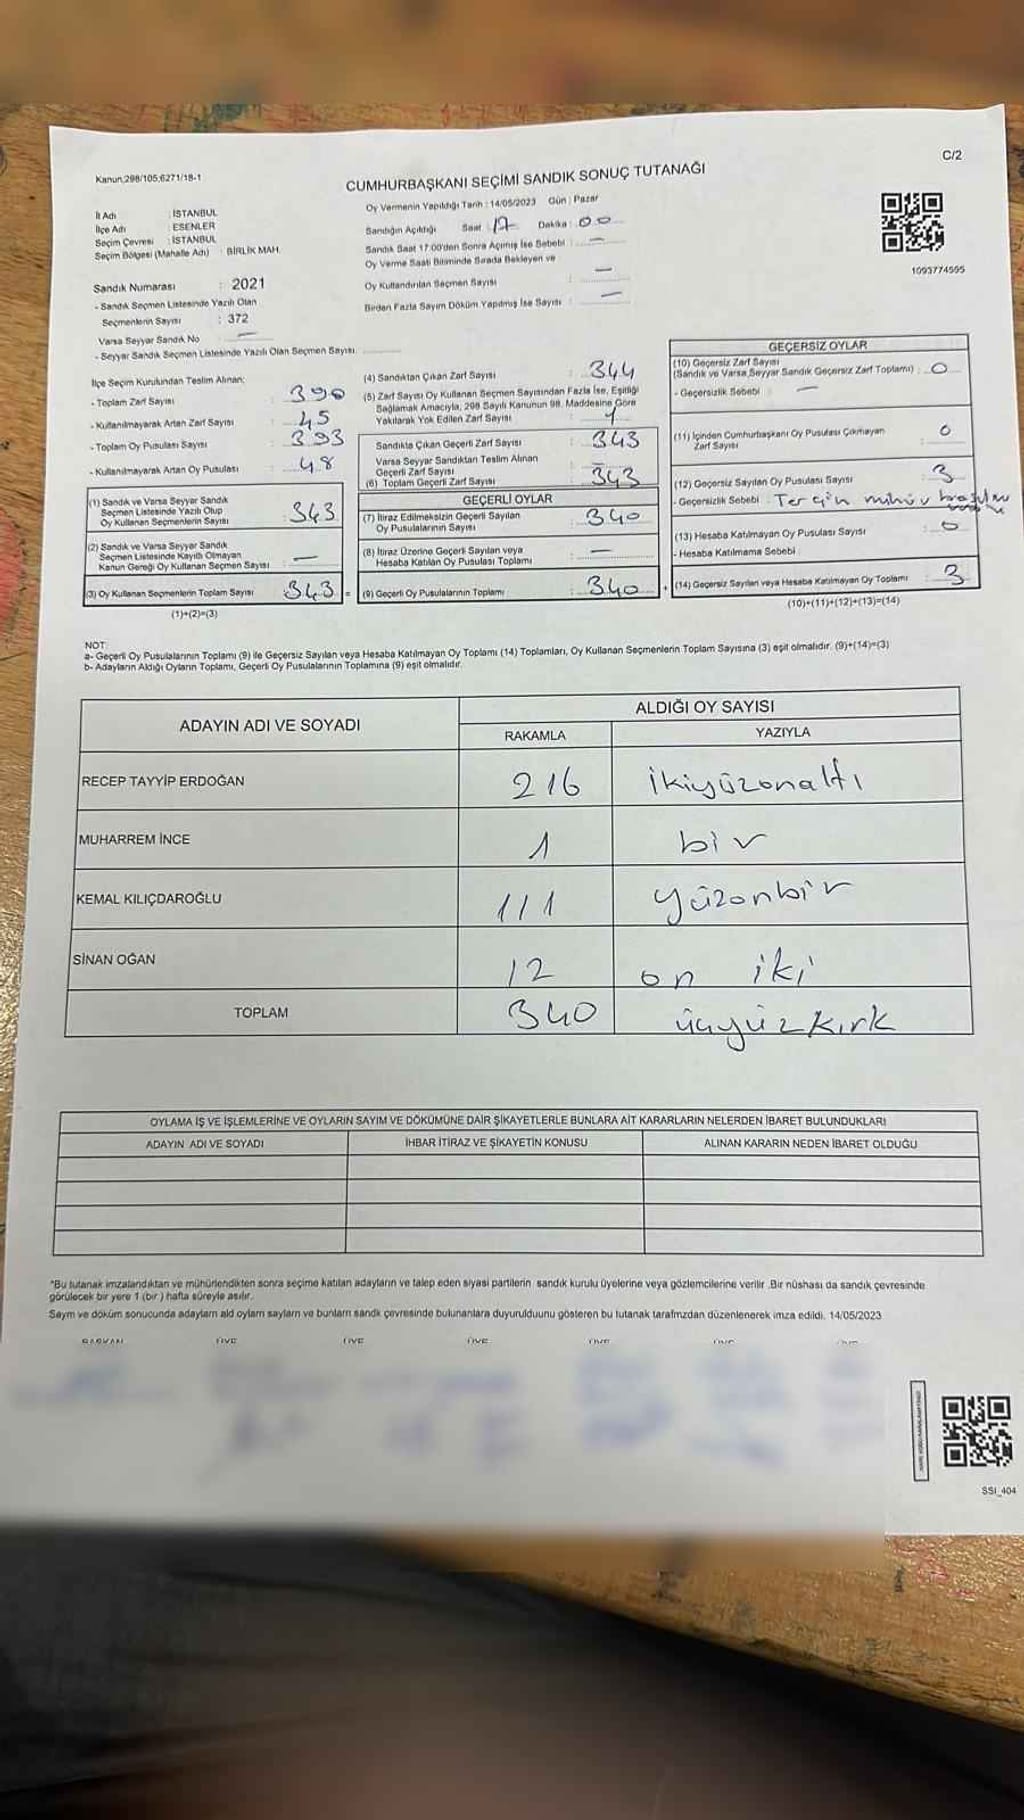 C/2
Kanun:298/105;6271/18-1
CUMHURBAŞKANI SEÇİMİ SANDIK SONUÇ TUTANAĞI
İl Adı : İSTANBUL
İlçe Adı : ESENLER
Seçim Çevresi : İSTANBUL
Seçim Bölgesi (Mahalle Adı) : BİRLİK MAH.
Oy Vermenin Yapıldığı Tarih : 14/05/2023 Gün : Pazar
Sandığın Açıldığı Saat : 17 Dakika : 00
Sandık Saat 17:00'den Sonra Açılmış İse Sebebi : —
Oy Verme Saati Bitiminde Sırada Bekleyen ve
Oy Kullandırılan Seçmen Sayısı : —
Birden Fazla Sayım Döküm Yapılmış İse Sayısı : —
1093774595
Sandık Numarası : 2021
- Sandık Seçmen Listesinde Yazılı Olan
Seçmenlerin Sayısı : 372
Varsa Seyyar Sandık No —
- Seyyar Sandık Seçmen Listesinde Yazılı Olan Seçmen Sayısı
İlçe Seçim Kurulundan Teslim Alınan:
- Toplam Zarf Sayısı : 390
- Kullanılmayarak Artan Zarf Sayısı : 45
- Toplam Oy Pusulası Sayısı : 393
- Kullanılmayarak Artan Oy Pusulası : 48
(1) Sandık ve Varsa Seyyar Sandık
Seçmen Listesinde Yazılı Olup
Oy Kullanan Seçmenlerin Sayısı : 343
(2) Sandık ve Varsa Seyyar Sandık
Seçmen Listesinde Kayıtlı Olmayan
Kanun Gereği Oy Kullanan Seçmen Sayısı : —
(3) Oy Kullanan Seçmenlerin Toplam Sayısı : 343 =
(1)+(2)=(3)
(4) Sandıktan Çıkan Zarf Sayısı : 344
(5) Zarf Sayısı Oy Kullanan Seçmen Sayısından Fazla İse, Eşitliği
Sağlamak Amacıyla, 298 Sayılı Kanunun 98. Maddesine Göre
Yakılarak Yok Edilen Zarf Sayısı : 1
Sandıkta Çıkan Geçerli Zarf Sayısı : 343
Varsa Seyyar Sandıktan Teslim Alınan
Geçerli Zarf Sayısı : —
(6) Toplam Geçerli Zarf Sayısı : 343
GEÇERLİ OYLAR
(7) İtiraz Edilmeksizin Geçerli Sayılan
Oy Pusulalarının Sayısı : 340
(8) İtiraz Üzerine Geçerli Sayılan veya
Hesaba Katılan Oy Pusulası Toplamı : —
(9) Geçerli Oy Pusulalarının Toplamı : 340 +
GEÇERSİZ OYLAR
(10) Geçersiz Zarf Sayısı
(Sandık ve Varsa Seyyar Sandık Geçersiz Zarf Toplamı) : 0
- Geçersizlik Sebebi : —
(11) İçinden Cumhurbaşkanı Oy Pusulası Çıkmayan
Zarf Sayısı : 0
(12) Geçersiz Sayılan Oy Pusulası Sayısı : 3
- Geçersizlik Sebebi : Tercihin mühür
(13) Hesaba Katılmayan Oy Pusulası Sayısı : 0
- Hesaba Katılmama Sebebi
(14) Geçersiz Sayılan veya Hesaba Katılmayan Oy Toplamı : 3
(10)+(11)+(12)+(13)=(14)
NOT:
a- Geçerli Oy Pusulalarının Toplamı (9) ile Geçersiz Sayılan veya Hesaba Katılmayan Oy Toplamı (14) Toplamları, Oy Kullanan Seçmenlerin Toplam Sayısına (3) eşit olmalıdır. (9)+(14)=(3)
b- Adayların Aldığı Oyların Toplamı, Geçerli Oy Pusulalarının Toplamına (9) eşit olmalıdır.
ADAYIN ADI VE SOYADI ALDIĞI OY SAYISI
RAKAMLA YAZIYLA
RECEP TAYYİP ERDOĞAN 216 ikiyüzonaltı
MUHARREM İNCE 1 bir
KEMAL KILIÇDAROĞLU 111 yüzonbir
SİNAN OĞAN 12 on iki
TOPLAM 340 üçyüzkırk
OYLAMA İŞ VE İŞLEMLERİNE VE OYLARIN SAYIM VE DÖKÜMÜNE DAİR ŞİKAYETLERLE BUNLARA AİT KARARLARIN NELERDEN İBARET BULUNDUKLARI
ADAYIN ADI VE SOYADI İHBAR İTİRAZ VE ŞİKAYETİN KONUSU ALINAN KARARIN NEDEN İBARET OLDUĞU
*Bu tutanak imzalandıktan ve mühürlendikten sonra seçime katılan adayların ve talep eden siyasi partilerin sandık kurulu üyelerine veya gözlemcilerine verilir .Bir nüshası da sandık çevresinde
görülecek bir yere 1 (bir ) hafta süreyle asılır.
Sayım ve döküm sonucunda adayların ald oyların saylarn ve bunların sandk çevresinde bulunanlara duyurulduunu gösteren bu tutanak tarafmzdan düzenlenerek imza edildi. 14/05/2023
BAŞKAN ÜYE ÜYE ÜYE ÜYE ÜYE ÜYE
SSI_404